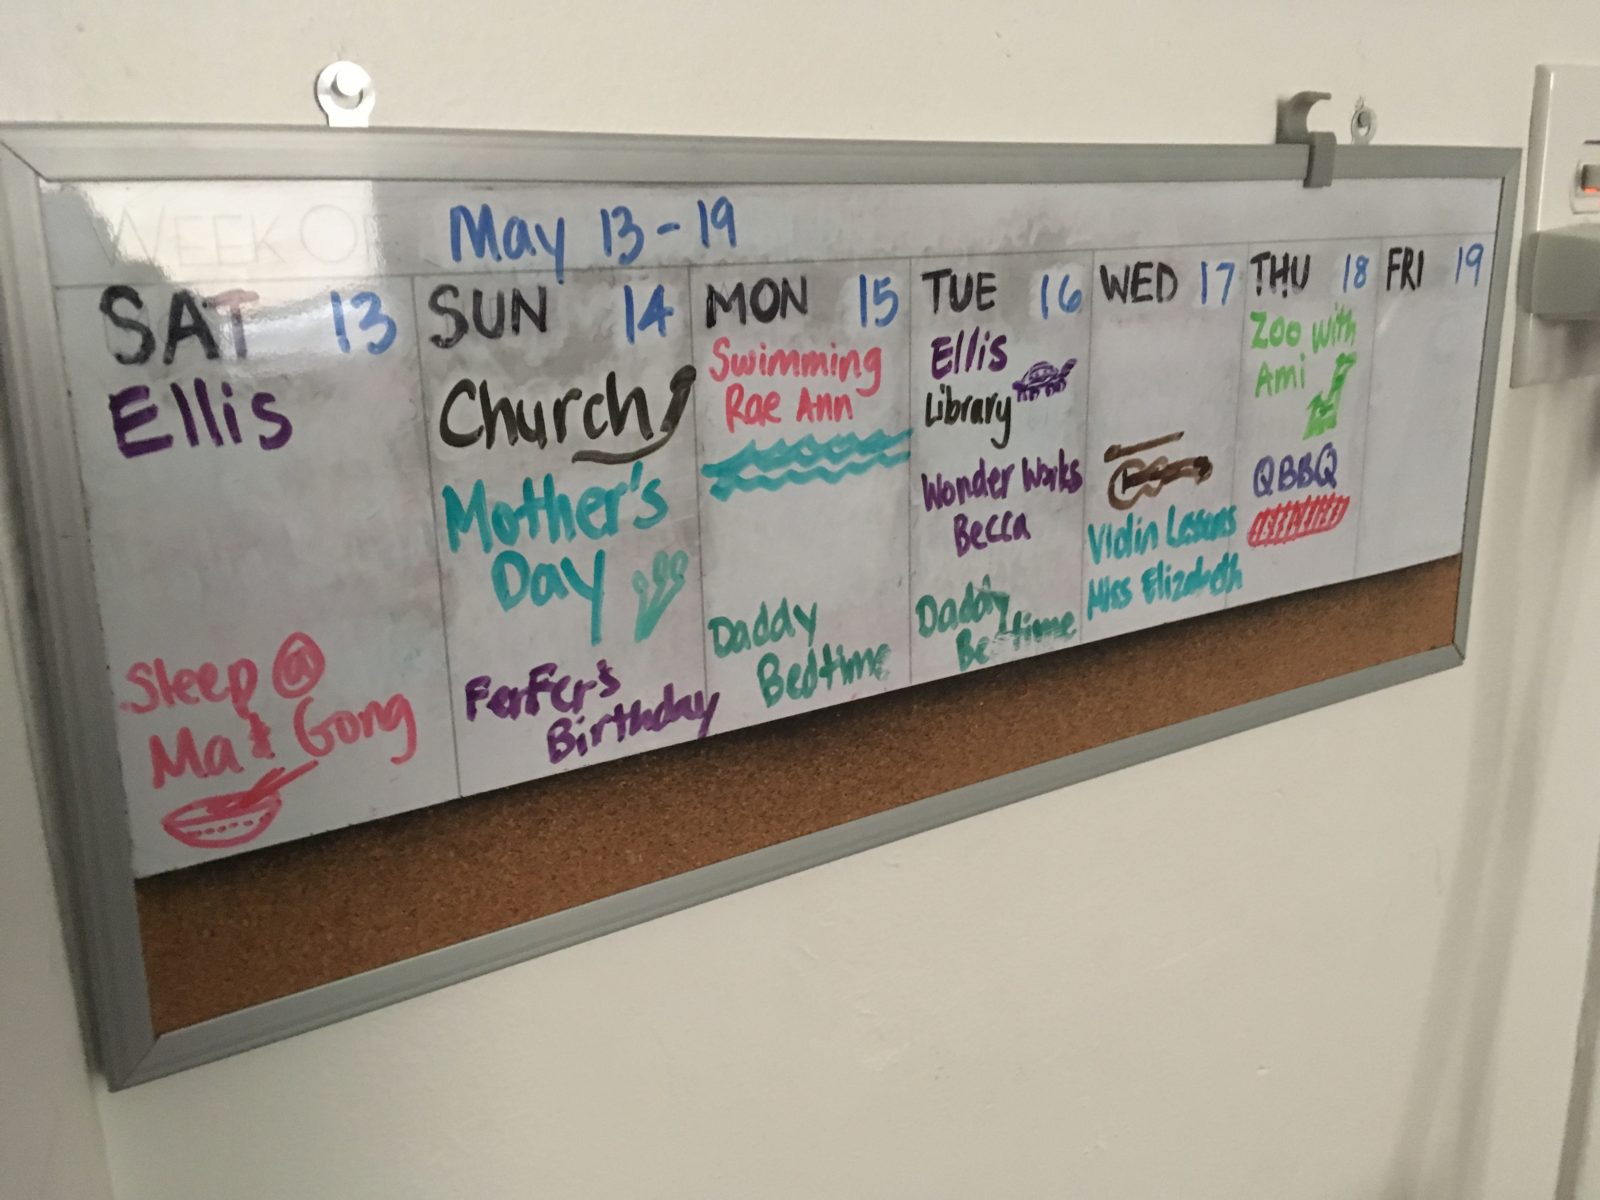 WEEK OF
May 13-19
SAT 13
Ellis
Sleep @
Ma & Gong
SUN 14
Church
Mother's
Day
FerFer's
Birthday
MON 15
Swimming
Rae Ann
Daddy
Bedtime
TUE 16
Ellis
Library
Wonder Works
Becca
Daddy
Bedtime
WED 17
Violin Lessons
Miss Elizabeth
THU 18
Zoo with
Ami
QBBQ
FRI 19